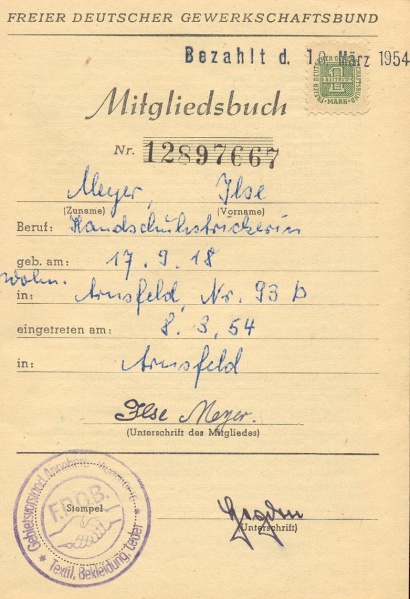 FREIER DEUTSCHER GEWERKSCHAFTSBUND
Bezahlt d. 10. März 1954
1
MARK
Mitgliedsbuch
Nr. 12897667
Meyer, Ilse
(Zuname) (Vorname)
Beruf: Handschuhstrickerin
geb. am: 17.9.18
wohn.
in: Arnsfeld, Nr. 93 D
eingetreten am: 8.3.54
in: Arnsfeld
Ilse Meyer.
(Unterschrift des Mitgliedes)
Stempel
(Unterschrift)
Gebietsvorstand Annaberg
F.D.G.B.
Textil, Bekleidung, Leder